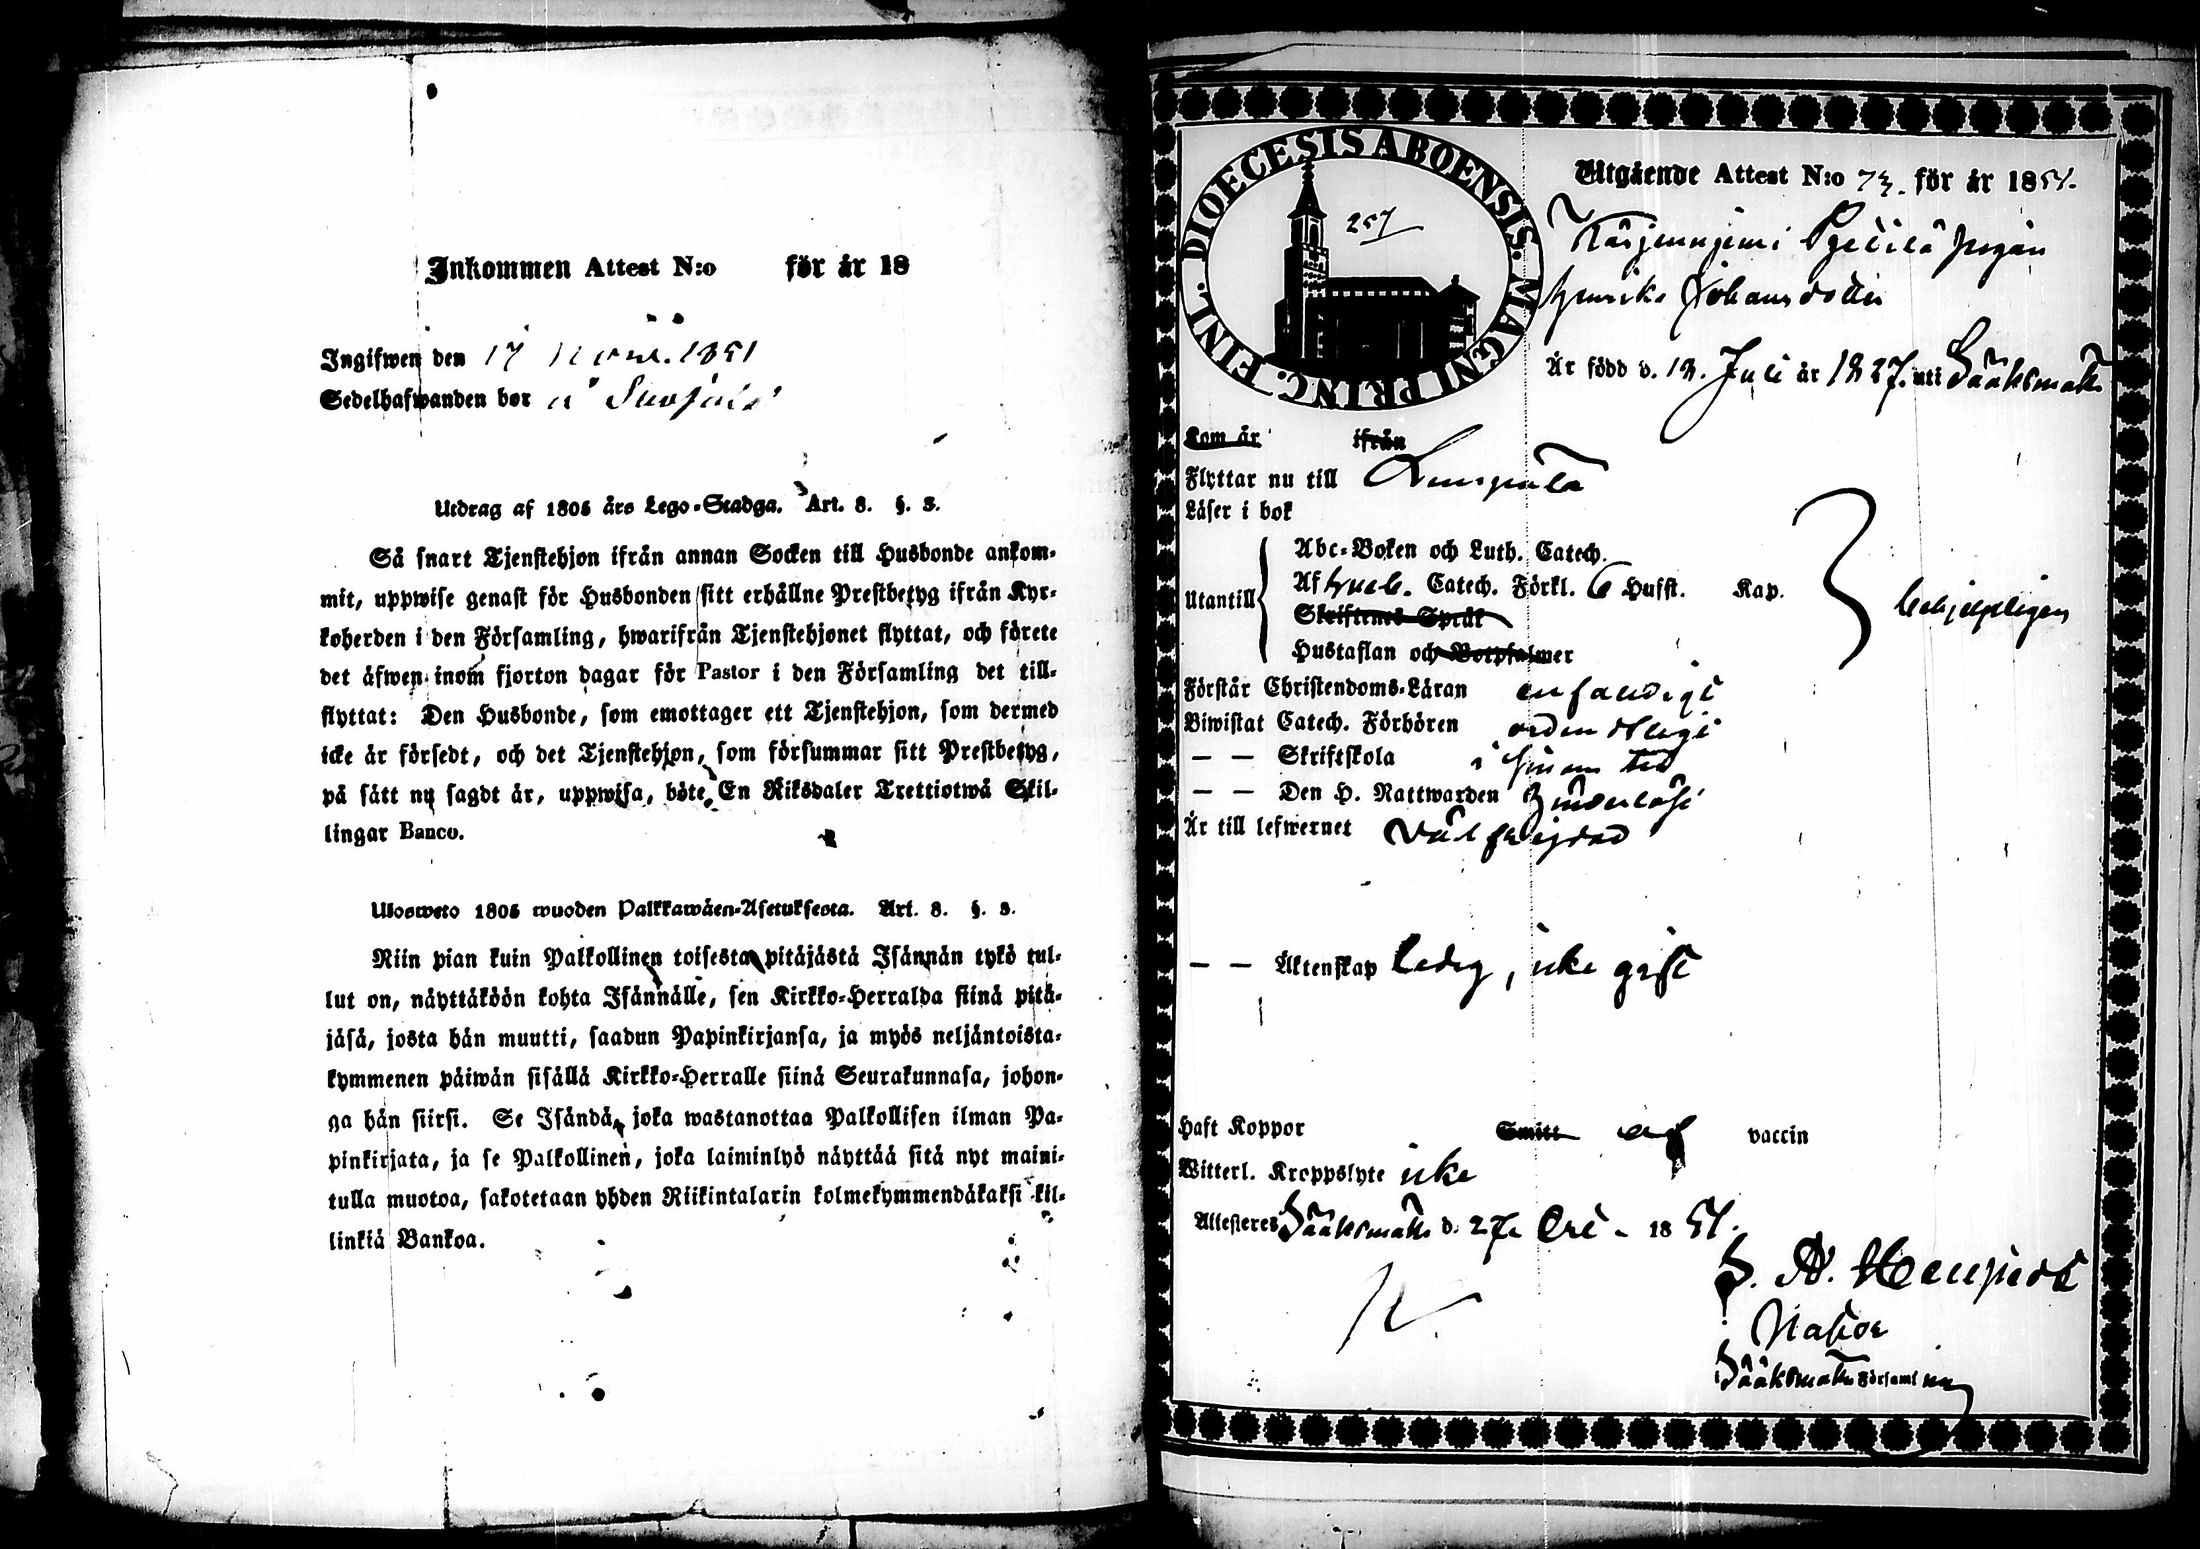 Inkommen Attest N:o för år 18
Ingifwen den 17 Nov. 1851
Sedelhafwanden bor å
Utdrag af 1805 års Lego-Stadga. Art. 8. §. 3.
Så snart Tjenstehjon ifrån annan Socken till Husbonde ankom-
mit, uppwise genast för Husbonden sitt erhållne Prestbetyg ifrån Kyr-
koherden i den Församling, hwarifrån Tjenstehjonet flyttat, och förete
det äfwen inom fjorton dagar för Pastor i den Församling det till-
flyttat: Den Husbonde, som emottager ett Tjenstehjon, som dermed
icke är försedt, och det Tjenstehjon, som försummar sitt Prestbetyg,
på sätt nu sagdt är, uppwisa, böte En Riksdaler Trettiotwå Skil-
lingar Banco.
Ulosweto 1805 wuoden Palkkawäen-Asetuksesta. Art. 8. §. 3.
Niin pian kuin Palkollinen toisesta pitäjästä Isännän tykö tul-
lut on, näyttäköön kohta Isännälle, sen Kirkko-Herralda siinä pitä-
jäsä, josta hän muutti, saadun Papinkirjansa, ja myös neljäntoista-
kymmenen päiwän sisällä Kirkko-Herralle siinä Seurakunnasa, johon-
ga hän siirsi. Se Isändä, joka wastanottaa Palkollisen ilman Pa-
pinkirjata, ja se Palkollinen, joka laiminlyö näyttää sitä nyt maini-
tulla muotoa, sakotetaan yhden Riikintalarin kolmekymmendäkaksi kil-
linkiä Bankoa.
DIOECESIS ABOENSIS. MAGNI PRINC. FINL.
257
Utgående Attest N:o 73. för år 1851.
pigan
Henrika Johansdotter
Är född d. 18. Juli år 1827. uti Sääksmäki
Kom år ifrån
Flyttar nu till Lempälä
Läser i bok
Utantill
Abc-Boken och Luth. Catech.
Af Catech. Förkl. 6 Hufst. Kap.
Skriftenes Språk
Hustaflan och Botpsalmer
behjelpligen
Förstår Christendoms-Läran enfaldigt
Biwistat Catech. Förhören ordentligt
— — Skriftskola i sinom tid
— — Den H. Nattwarden
Är till lefwernet wälfrejdad
— — Äktenskap ledig, icke gift
Haft Koppor Smitt af vaccin
Witterl. Kroppslyte icke
Attesteres Sääksmäki d. 27 Oct. 1851.
Pastor
Sääksmäki Församling